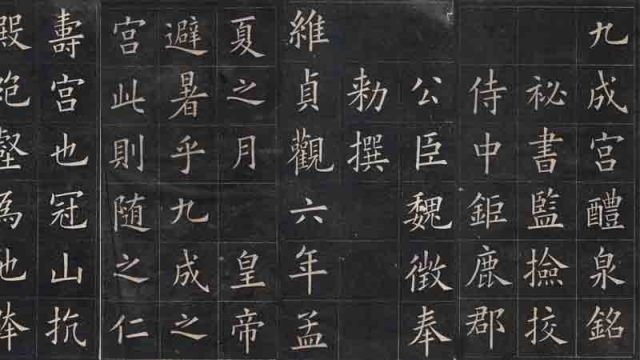 九成宮醴泉銘
祕書監撿挍
侍中鉅鹿郡
公臣魏徵奉
勅撰
維貞觀六年孟
夏之月 皇帝
避暑乎九成之
宮此則随之仁
壽宮也冠山抗
殿絶壑爲池